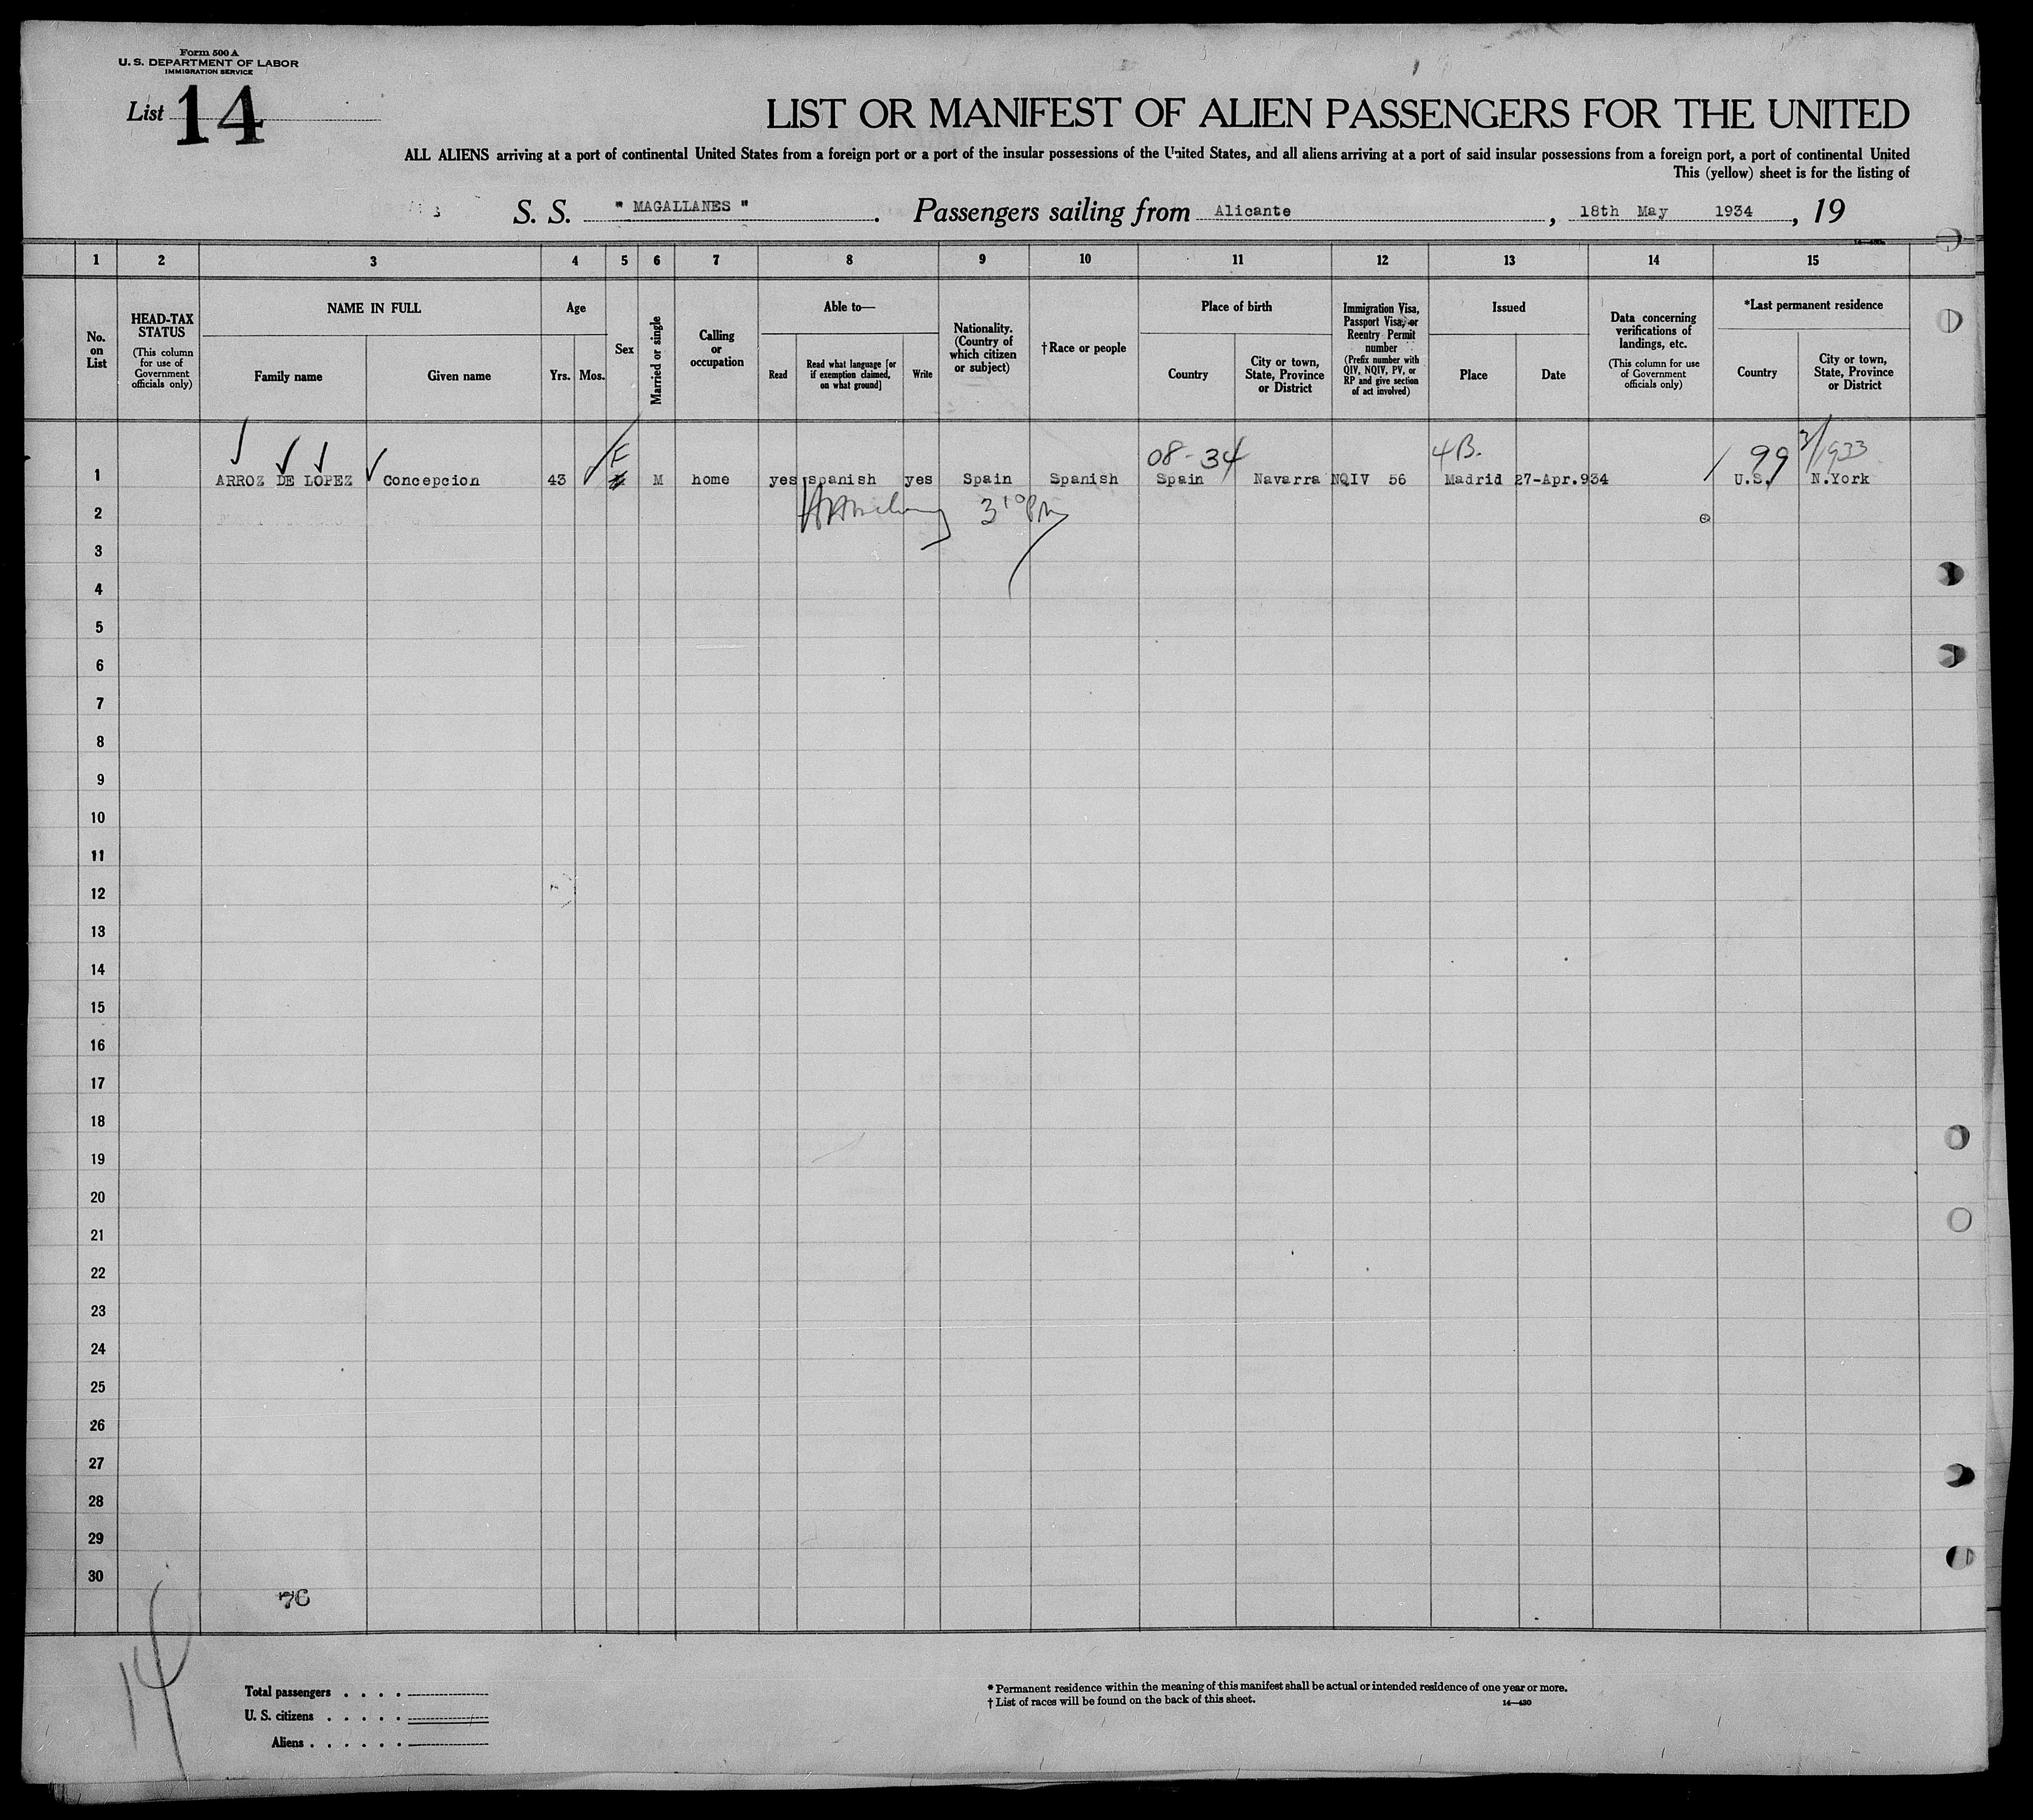 Form 500 A
U. S. DEPARTMENT OF LABOR
IMMIGRATION SERVICE
List 14
LIST OR MANIFEST OF ALIEN PASSENGERS FOR THE UNITED
ALL ALIENS arriving at a port of continental United States from a foreign port or a port of the insular possessions of the United States, and all aliens arriving at a port of said insular possessions from a foreign port, a port of continental United
This (yellow) sheet is for the listing of
S. S. " MAGALLANES " . Passengers sailing from Alicante , 18th May 1934 , 19
1 2 3 4 5 6 7 8 9 10 11 12 13 14 15
No. on List
HEAD-TAX STATUS
(This column for use of Government officials only)
NAME IN FULL
Family name
Given name
Age
Yrs. Mos.
Sex
Married or single
Calling or occupation
Able to—
Read
Read what language [or if exemption claimed, on what ground]
Write
Nationality. (Country of which citizen or subject)
† Race or people
Place of birth
Country
City or town, State, Province or District
Immigration Visa, Passport Visa, or Reentry Permit number
(Prefix number with QIV, NQIV, PV, or RP and give section of act involved)
Issued
Place
Date
Data concerning verifications of landings, etc.
(This column for use of Government officials only)
*Last permanent residence
Country
City or town, State, Province or District
F 08-34 4B. 99 3/1933
1 ARROZ DE LOPEZ Concepcion 43 M home yes spanish yes Spain Spanish Spain Navarra NQIV 56 Madrid 27-Apr.934 U.S. N.York
2 3 10 PM
3
4
5
6
7
8
9
10
11
12
13
14
15
16
17
18
19
20
21
22
23
24
25
26
27
28
29
30
76
14
Total passengers . . . .
U. S. citizens . . . . .
Aliens . . . . . .
* Permanent residence within the meaning of this manifest shall be actual or intended residence of one year or more.
† List of races will be found on the back of this sheet. 14—430